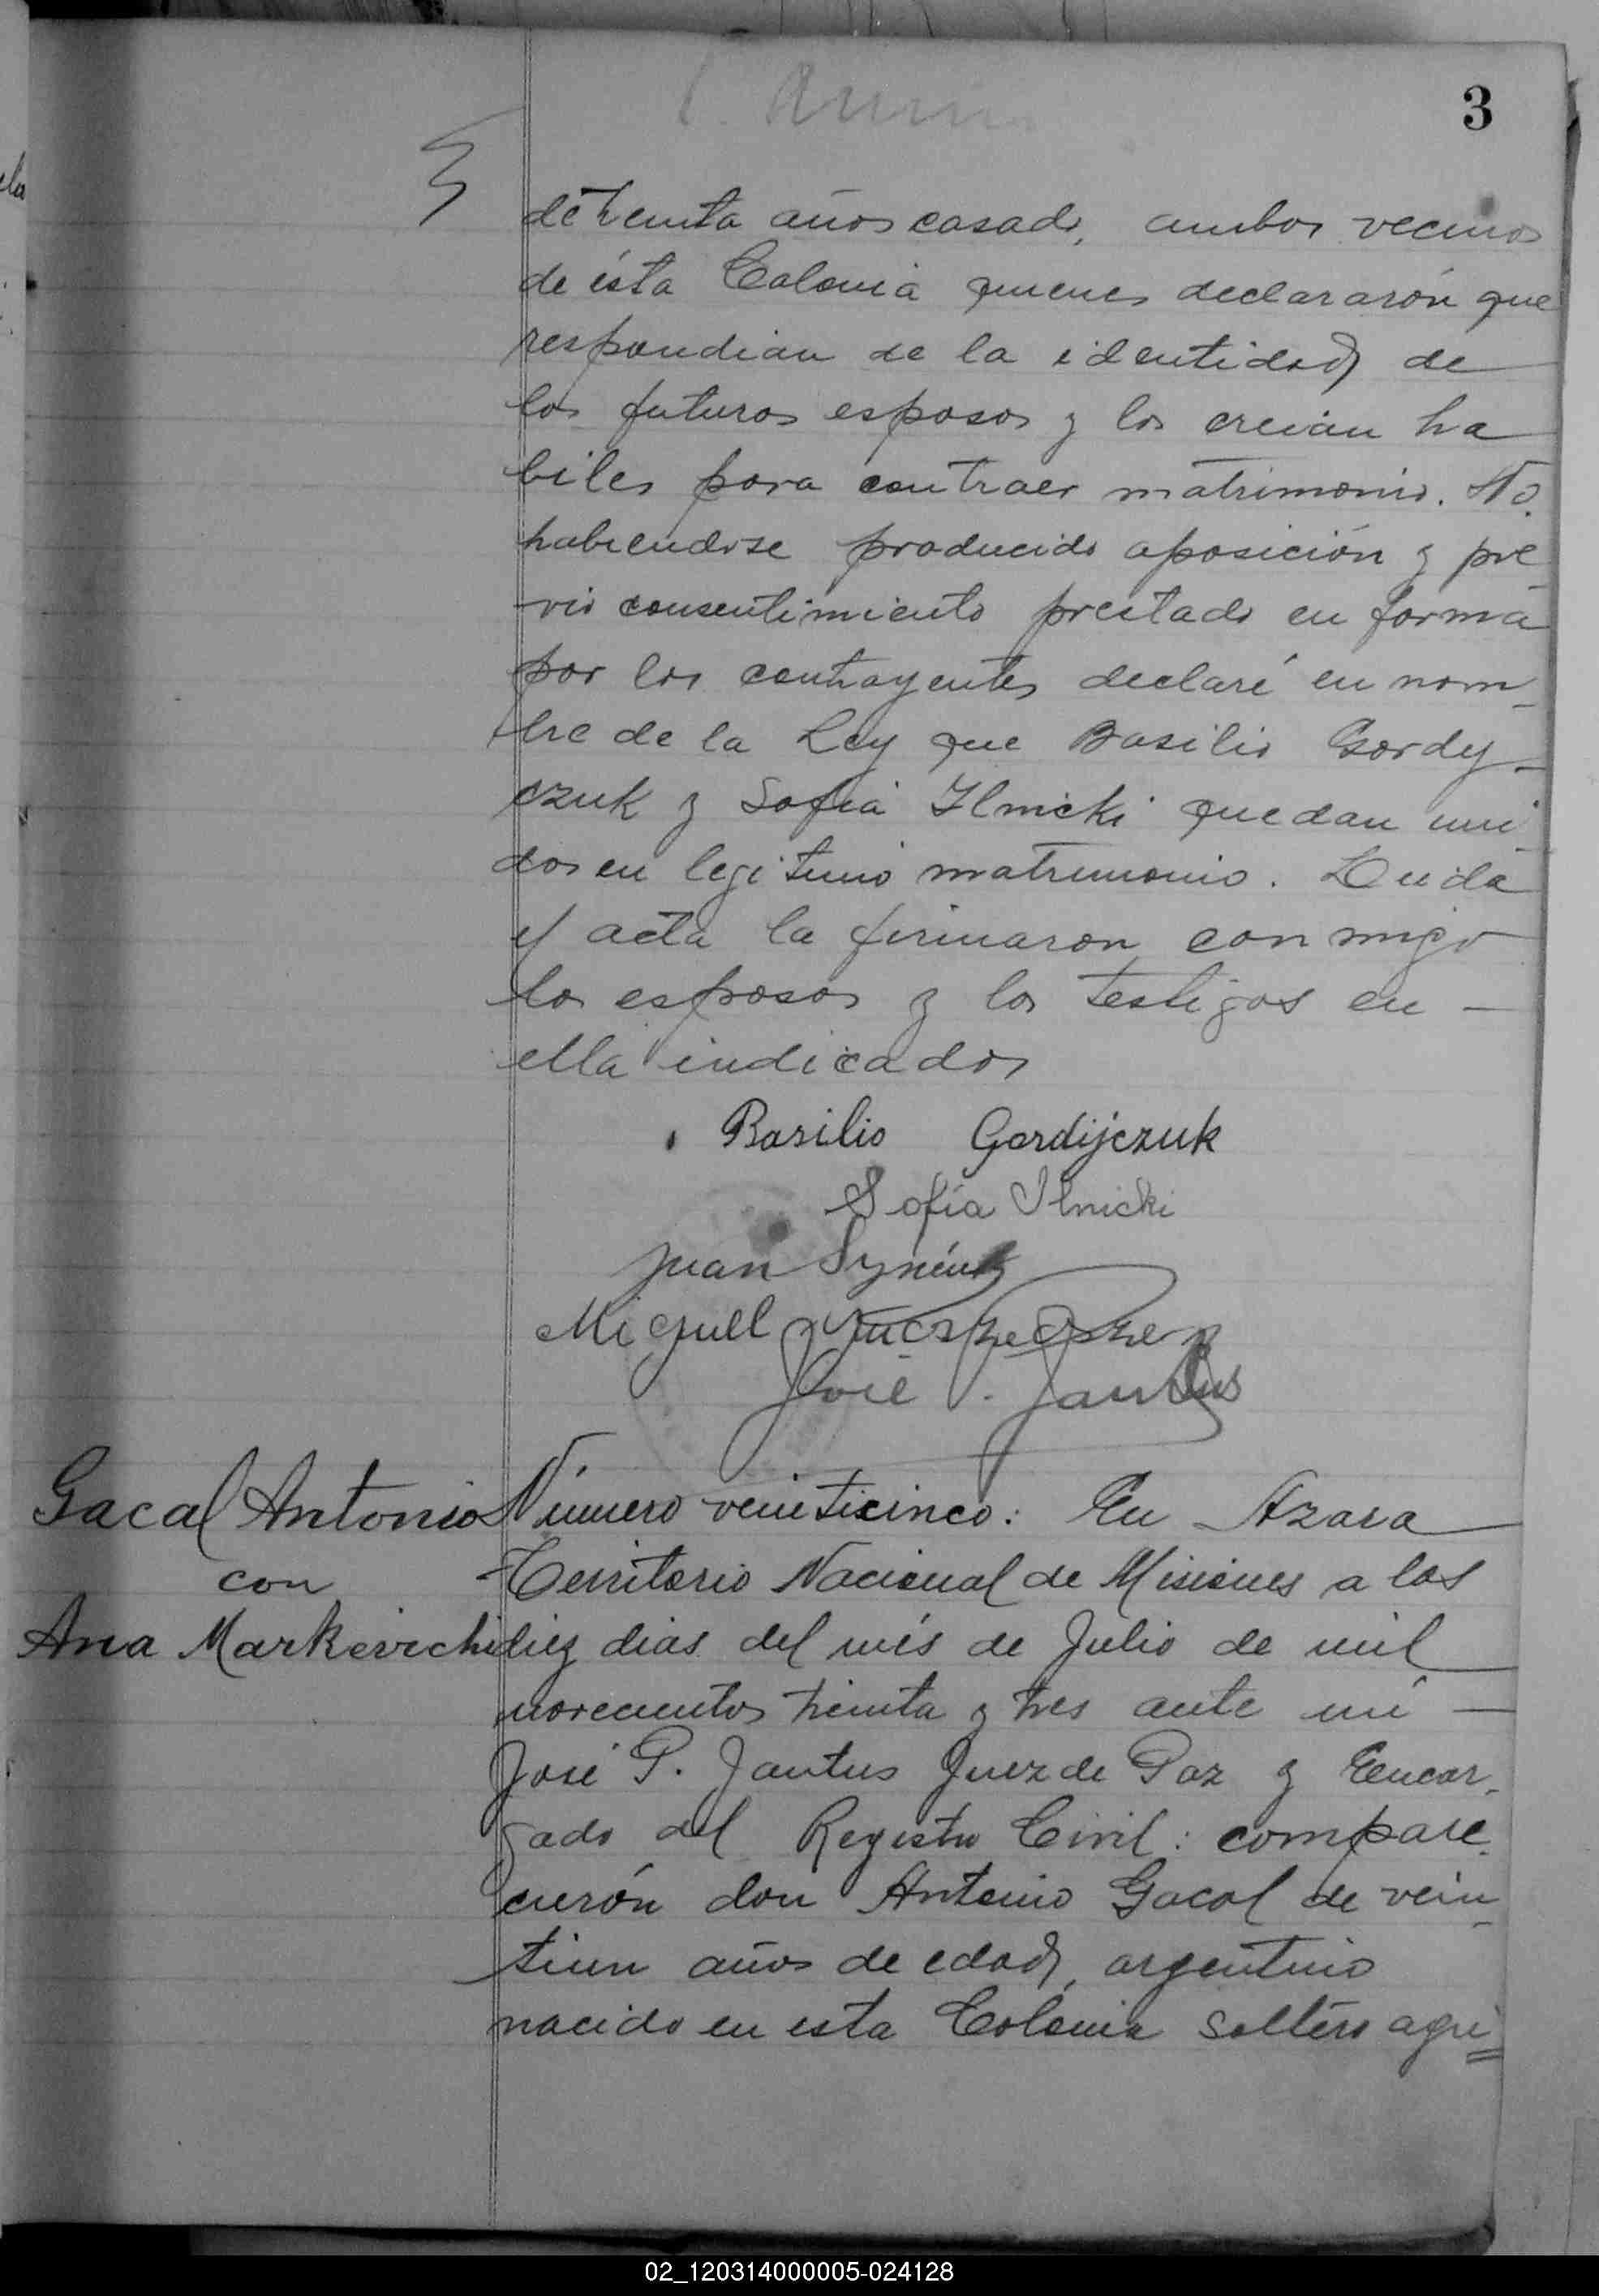 3
de treinta años casado, ambos vecinos
de ésta Colonia quienes declararón que
respondian de la identidad de
los futuros esposos y los creian ha
biles para contraer matrimonio. No
habiendose producido oposición y pre-
vio consentimiento prestado en forma
por los contrayentes declaré en nom-
bre de la Ley que Basilio Gordy-
czuk y Sofia Ilnicki quedan uni-
dos en legitimo matrimonio. Leida
y acta la firmaron conmigo
los esposos y los testigos en —
ella indicados
Basilio Gordijczuk
Sofia Ilnicki
Juan
Miguel
José P. Jantus
Gacal Antonio
con
Ana Markevichi
Número veinticinco: En Azara
Territorio Nacional de Misiones a los
diez dias del més de Julio de mil
novecientos treinta y tres ante mi —
José P. Jantus Juez de Paz y Encar-
gado del Registro Civil: compare-
cierón don Antonio Gacal de vein-
tiun años de edad, argentino
nacido en esta Colonia soltero agri=
02_120314000005-024128